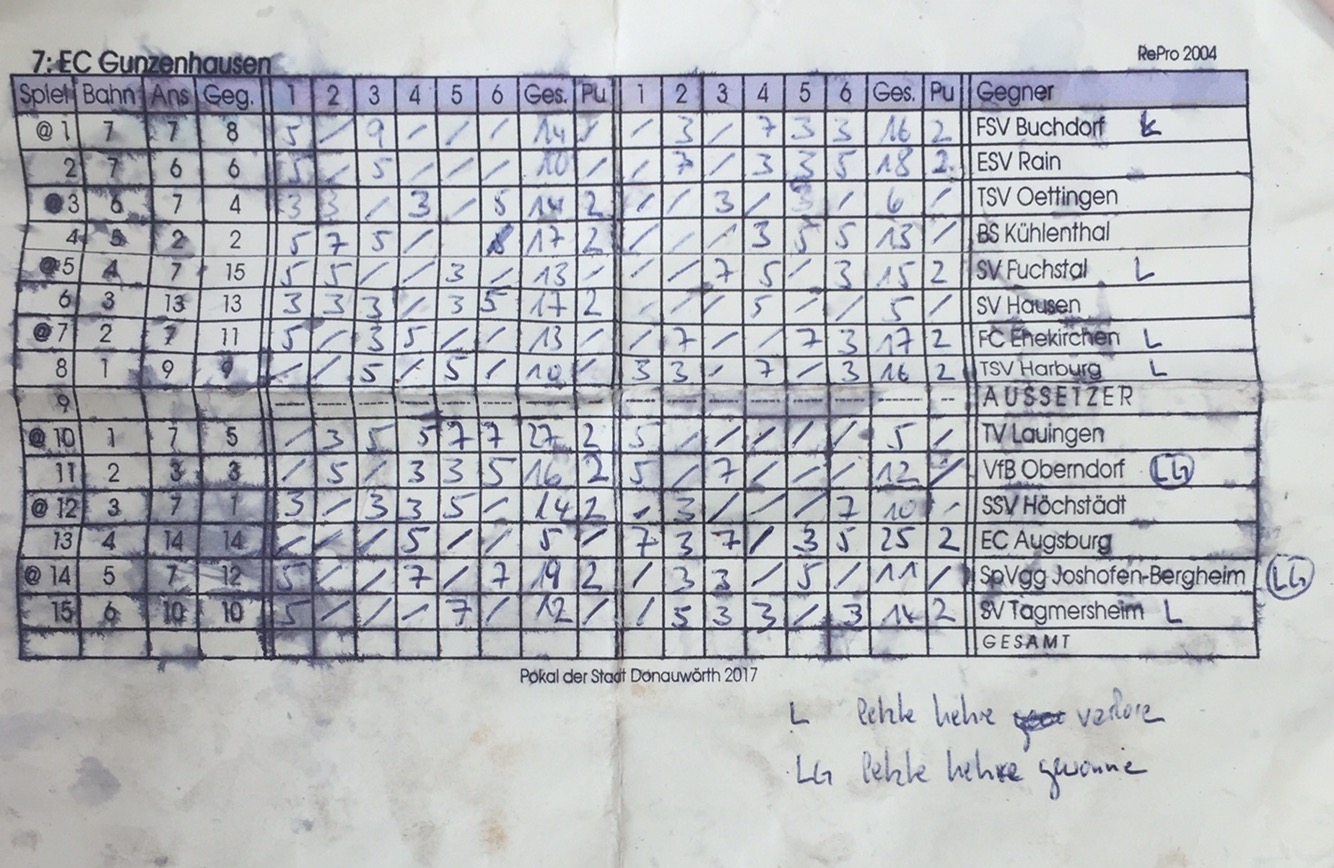 7: EC Gunzenhausen RePro 2004
Spiel Bahn Ans Geg. 1 2 3 4 5 6 Ges. Pu 1 2 3 4 5 6 Ges. Pu Gegner
@ 1 7 7 8 5 / 9 / / / 14 / / 3 / 7 3 3 16 2 FSV Buchdorf L
2 7 6 6 5 / 5 / / / 10 / / 7 / 3 3 5 18 2 ESV Rain
@ 3 6 7 4 3 3 / 3 / 5 14 2 / / 3 / 3 / 6 / TSV Oettingen
4 5 2 2 5 7 5 / 17 2 / / / 3 5 5 13 / BS Kühlenthal
@ 5 4 7 15 5 5 / / 3 / 13 / / / 7 5 / 3 15 2 SV Fuchstal L
6 3 13 13 3 3 3 / 3 5 17 2 / / / 5 / / 5 / SV Hausen
@ 7 2 7 11 5 / 3 5 / / 13 / / 7 / / 7 3 17 2 FC Ehekirchen L
8 1 9 9 / / 5 / 5 / 10 / 3 3 / 7 / 3 16 2 TSV Harburg L
9 --- --- --- --- --- --- ----- -- --- --- --- --- --- --- ----- -- AUSSETZER
@ 10 1 7 5 / 3 5 5 7 7 27 2 5 / / / / / 5 / TV Lauingen
11 2 3 3 / 5 / 3 3 5 16 2 5 / 7 / / / 12 / VfB Oberndorf LG
@ 12 3 7 1 3 / 3 3 5 / 14 2 / 3 / / / 7 10 / SSV Höchstädt
13 4 14 14 / / / 5 / / 5 / 7 3 7 / 3 5 25 2 EC Augsburg
@ 14 5 7 12 5 / / 7 / 7 19 2 / 3 3 / 5 / 11 / SpVgg Joshofen-Bergheim LG
15 6 10 10 5 / / / 7 / 12 / / 5 3 3 / 3 14 2 SV Tagmersheim L
GESAMT
Pokal der Stadt Donauwörth 2017
L letzte kehre verlore
LG letzte kehre gewonne